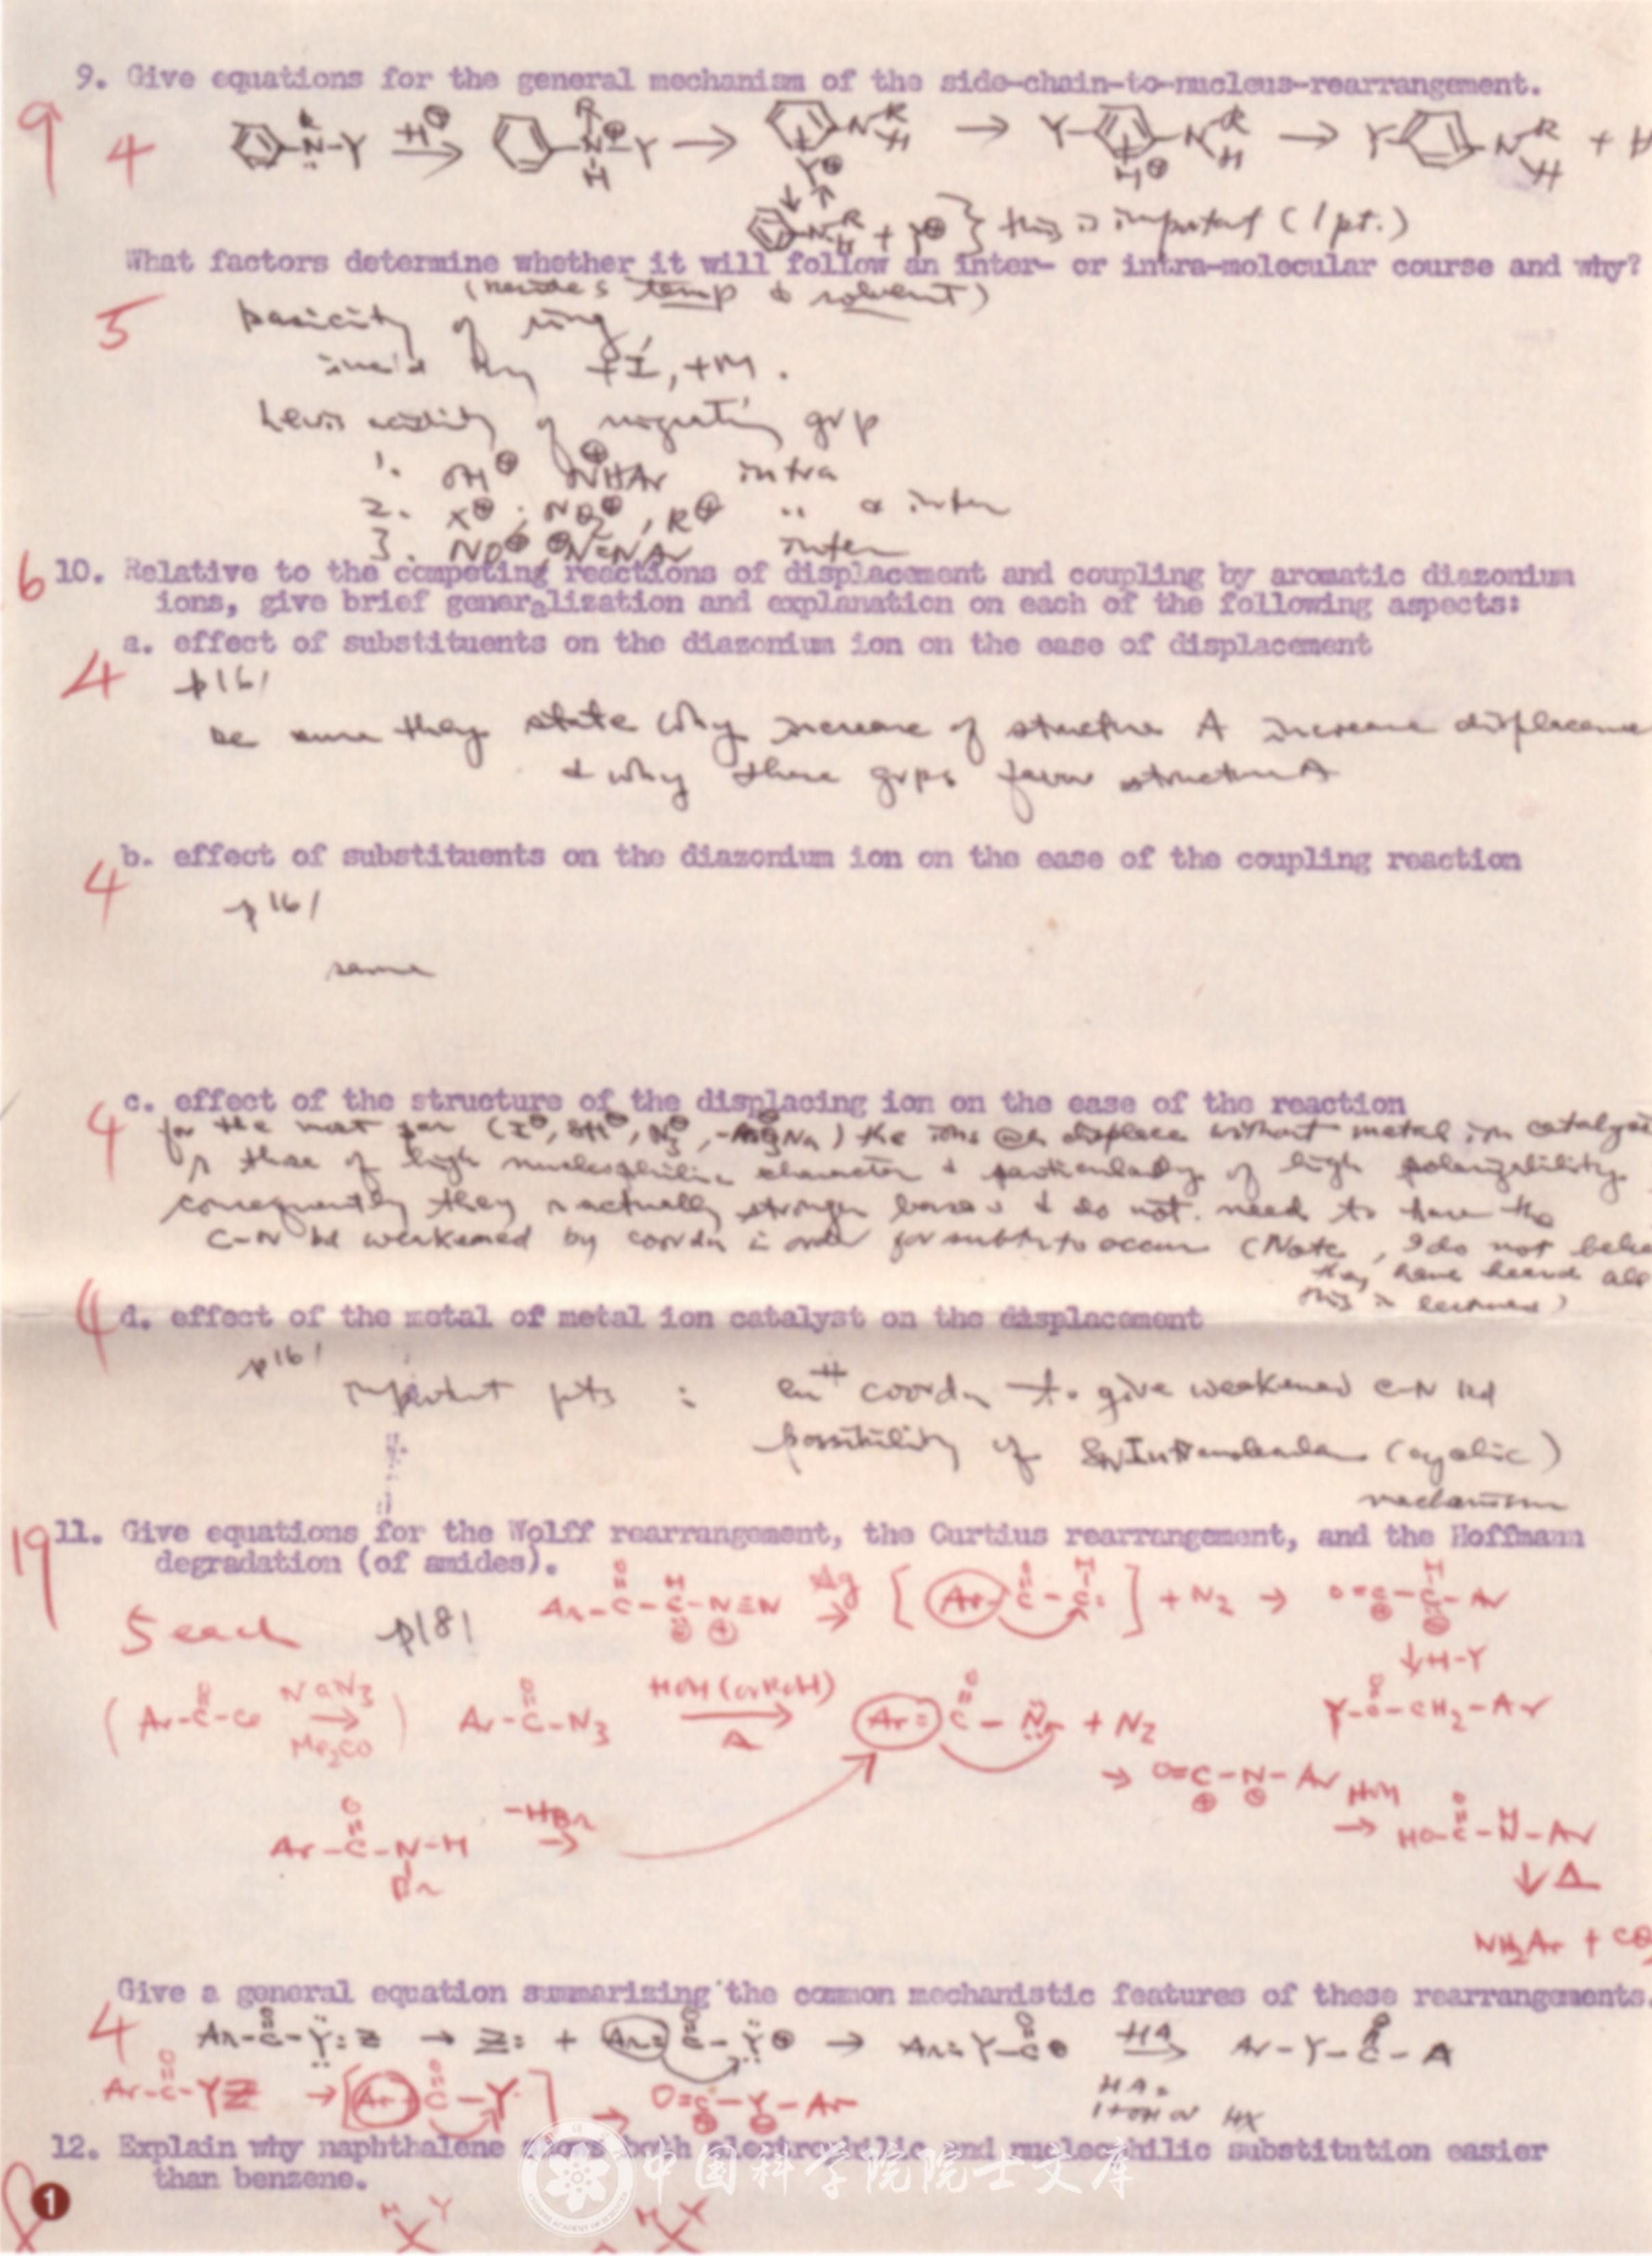 9. Give equations for the general mechanism of the side-chain-to-nucleus-rearrangement.
9
4
} this is important (1 pt.)
What factors determine whether it will follow an inter- or intra-molecular course and why?
(besides temp & solvent)
5
basicity of ring
inc'd by +I, +M.
Lewis acidity of migrating grp
1. OH⊕ ⊕NHAr intra
2. X⊕, NO2⊕, R⊕ " & inter
3. NO⊕ ⊕N=NAr inter
6
10. Relative to the competing reactions of displacement and coupling by aromatic diazonium
ions, give brief generalization and explanation on each of the following aspects:
a. effect of substituents on the diazonium ion on the ease of displacement
4
p161
be sure they state why increase of structure A increase
& why these grps favor structure A
b. effect of substituents on the diazonium ion on the ease of the coupling reaction
4
p161
same
c. effect of the structure of the displacing ion on the ease of the reaction
4
for the most par the ions displace without metal ion
those of high nucleophilic character & particularly of high polarizability.
consequently they actually stronger bases & do not need to have the
C-N bd weakened by coordn in order for to occur (Note, I do not
they have heard all
this in lectures)
d. effect of the metal of metal ion catalyst on the displacement
4
p161
important pts : coordn to give weakened C-N bd
possibility of SNIntramolecular (cyclic)
mechanism
19
11. Give equations for the Wolff rearrangement, the Curtius rearrangement, and the Hoffmann
degradation (of amides).
5 each p181
Ar-C-C-N≡N Ag → [Ar-C-C:] + N2 → O=C-C-Ar
↓H-Y
NaN3
Me2CO
Ar-C-N3 HOH (or ROH) Δ + N2
Y-C-CH2-Ar
→ O=C-N-Ar HOH
→ HO-C-N-Ar
Ar-C-N-H -HBr →
Br
↓Δ
NH2Ar + CO2
Give a general equation summarizing the common mechanistic features of these rearrangements.
4
Ar-C-Y:Z → Z: + Ar:C-Y⊕ → Ar:Y-C⊕ HA Ar-Y-C-A
Ar-C-YZ → [Ar-C-Y] → O=C-Y-Ar
HA =
HOH or HX
12. Explain why naphthalene shows both electrophilic and nucleophilic substitution easier
than benzene.
1
H Y H Y
中国科学院院士文库